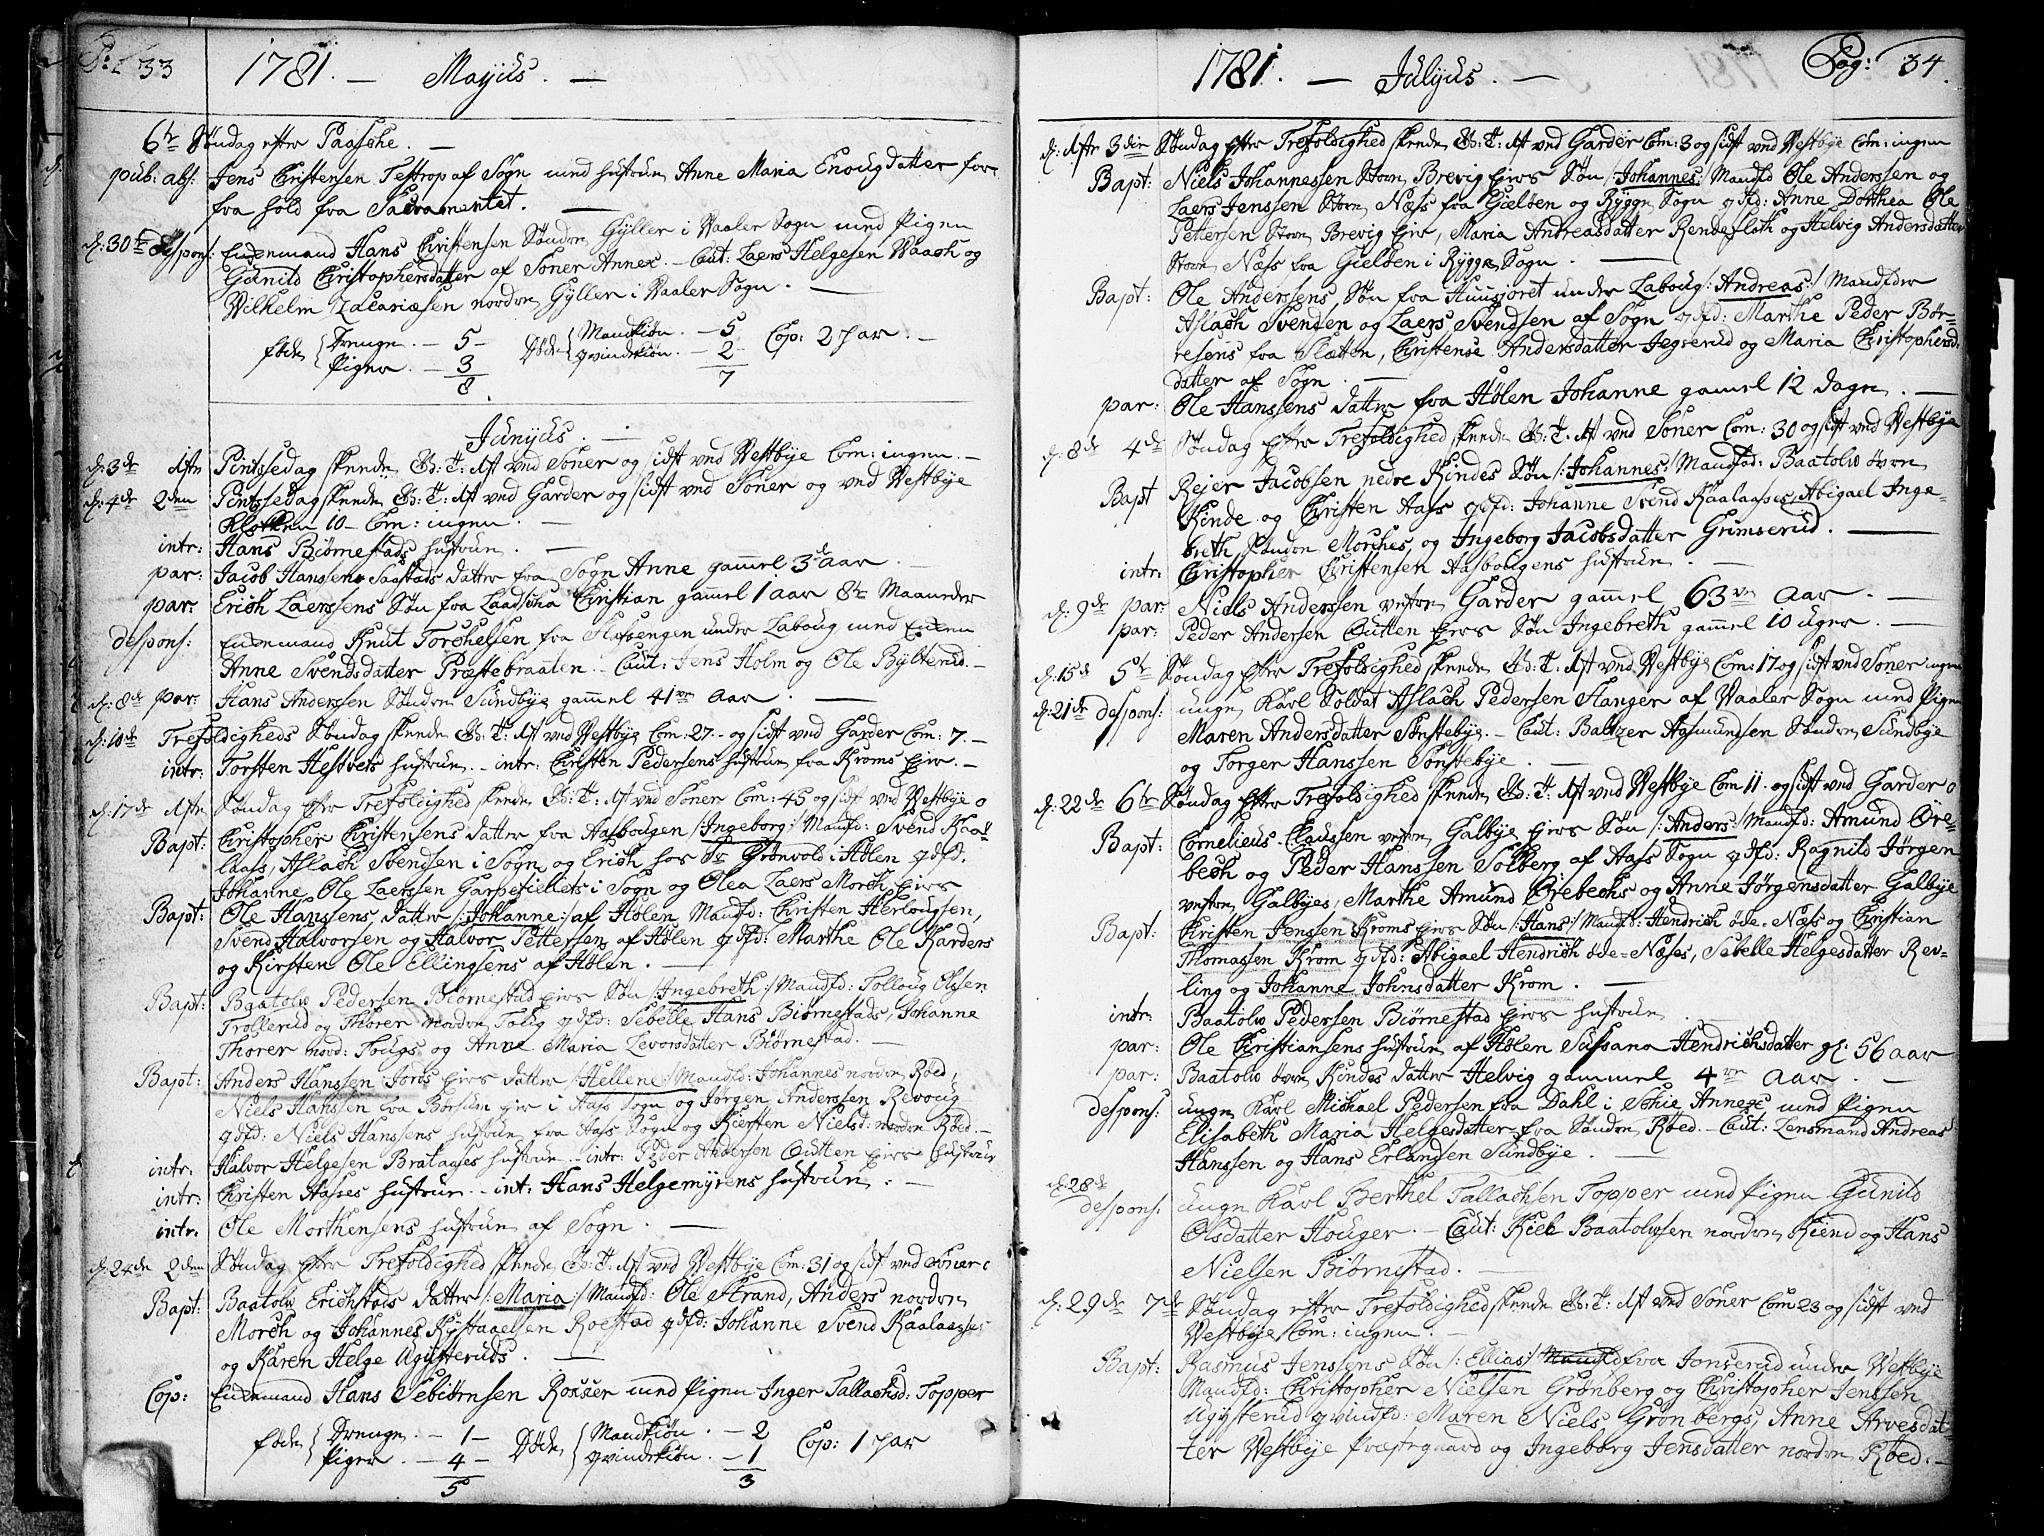 P: 33 1781. — Mayius. —
6te Søndag efter Paasche. —
pub: abs: Jens Christensen Testrop af Sogn med hustrue Anne Maria Enougdatter for-
fra hold fra Sacramentet. —
d: 30te despons: Enkemand Hans Christensen Søndre Gyller i Vaaler Sogn med Pigen
Gunild Christophersdatter af Soner Annex. — Caut: Laers Helgesen Vaach og
Vilhelm Zacariæsen nordre Gyller i Vaaler Sogn. —
føde { Drenge. — 5 — Døde { Mandkiøn. — 5 Cop: 2 par. —
Piger. — 3 qvindekiøn. — 2
8 7
Junyus. —
d: 3de 1ste Pintsedag skeede G: T: 1st ved Soner og sidst ved Vestbye Com: ingen. —
d: 4de 2den Pintsedag skeede G: T: 1st ved Garder og sidst ved Soner og ved Vestbye
Klokken 10 — Com: ingen. —
intr: Hans Biørnestads hustrue. —
par: Jacob Hanssens Saastads datter fra Sogn Anne gammel 3de aar. —
par: Erich Laerssens Søn fra Laadscha Christian gammel 1 aar 8te Maaneder
despons: Enkemand Knut Torchelsen fra Slofsengen under Laboug med Enken
Anne Svendsdatter Præstebraaten. — Caut: Jens Holm og Ole Bylterud. —
d: 8de par: Hans Anderssen Søndre Sundbye gammel 41 aar. —
d: 10de Trefoldigheds Søndag skeede G: T: 1st ved Vestbye Com: 27. — og sidst ved Garder Com: 7. —
intr: Torsten Hestvets hustrue. — intr: Christen Pedersens hustrue fra Kroms Eier. —
d: 17de 1ste Søndag efter Trefoldighed skeede G: T: 1st ved Soner Com: 45 og sidst ved Vestbye 0
Bapt: Christopher Christensens datter fra Aasbougen /: Ingeborg :/ Mandfd: Svend Kaa-
laas, Aslach Svendsen i Sogn og Erich hos Sr Grønvold i Hølen qdfd:
Johanne Ole Laerssen Garsefiellets i Sogn og Olea Laers Morch Eiers
Bapt: Ole Hanssens datter /: Johanne :/ af Hølen Mandfd: Christen Herlougsen,
Svend Halvorsen og Halvor Pettersen af Hølen qdfd: Marthe Ole Karders
og Kirsten Ole Ellingsens af Hølen. —
Bapt: Baatolv Pedersen Biørnestad Eiers Søn /: Ingebreth :/ Mandfd: Tolloug Olsen
Trollerud og Thorer nordre Toug qdfd: Sebelle Hans Biørnestads, Johanne
Thorer nord: Tougs og Anne Maria Levorsdatter Biørnestad. —
Bapt: Anders Hanssen Jores Eiers datter /: Hellene :/ Mandfd: Johannes nordre Røed,
Niels Hanssen fra Børsum Eier i Aass Sogn og Jørgen Anderssen Revoug
qdfd: Niels Hanssens hustrue fra Aass Sogn og Kiersten Nielsd: nordre Røed. —
intr: Halvor Helgesen Brataases hustrue. — intr: Peder Andersen Outten Eiers hustrue
intr: Christen Aasses hustrue. — int: Hans Helgemyrens hustrue. —
intr: Ole Morthensens hustrue af Sogn. —
d: 24de 2den Søndag efter Trefoldighed skeede G: T: 1st ved Vestbye Com: 31 og sidst ved Soner 0
Bapt: Baatolv Erichstads datter /: Maria :/ Mandfd: Ole Strand, Anders nordre
Morch og Johannes Kystaaelsen Roestad qdfd: Johanne Svend Kaalaases
og Karen Helge Ugysteruds. —
Cop: Enkemand Hans Sebiørnsen Rosser med Pigen Inger Tallachsd: Topper
føde { Drenge. — 1 — Døde { Mandkiøn. — 2 Cop: 1 par
Piger. — 4 — qvindekiøn. — 1
5 3
1781. — Julyus. — Pag: 34.
d: 1ste 3die Søndag efter Trefoldighed skeede G: T: 1st ved Garder Com: 3 og sidst ved Vestbye Com: ingen
Bapt: Niels Johannessen Store Brevig Eiers Søn /: Johannes :/ Mandfd Ole Anderssen og
Laers Jenssen Store Næss fra Gielben og Rygge Sogn qdfd: Anne Dorthea Ole
Pettersen Store Brevig Eier, Maria Andreasdatter Rendefloth og Helvig Andersdatter
Store Næss fra Gielden i Rygge Sogn. —
Bapt: Ole Anderssens Søn fra Huusjoret under Laboug /: Andreas :/ Mandfdere
Aslach Svendsen og Laers Svendsen af Sogn qdfd: Marthe Peder Bør-
resens fra Slætten, Christense Andersdatter Jegserud og Maria Christophersd-
datter af Sogn. —
par: Ole Hanssens datter fra Hølen Johanne gamel 12 dage. —
d: 8de 4de Søndag efter Trefoldighed skeede G: T: 1st ved Soner Com: 30 og sidst ved Vestbye
Bapt Rejer Jacobsen nedre Kindes Søn /: Johannes :/ Mandfd: Baatolv øvre
Kinde og Christen Aass qdfd: Johanne Svend Kaalaases, Abigael Inge-
breth Søndre Morches, og Ingeborg Jacobsdatter Grimserud. —
intr: Christopher Christensen Aasbougens hustrue. —
d: 9de par: Niels Andersen vestre Garder gamel 63 aar. —
par: Peder Andersen Outten Eiers Søn Ingebreth gamel 10 uger. —
d: 15de 5te Søndag efter Trefoldighed skeede G: T: 1st ved Vestbye Com: 17 og sidst ved Soner ingen
d: 21de despons: unge Karl Soldat Aslach Pedersen Hanger af Vaaler Sogn med Pigen
Maren Andersdatter Sønstebye. — Caut: Baltzer Aasmundsen Søndre Sundbye
og Torger Hanssen Sønstebye. —
d: 22de 6te Søndag efter Trefoldighed skeede G: T: 1st ved Vestbye Com 11. — og sidst ved Garder 0
Bapt: Cornelieus Claussen vestre Galbye Eiers Søn /: Anders :/ Mandfd: Amund Øre-
bech og Peder Hanssen Solberg af Aass Sogn qdfd: Ragnild Jørgen
vestre Galbyes, Marthe Amund Ørebechs og Anne Jørgensdatter Galbye
Bapt: Christen Jenssen Kroms Eiers Søn /: Hans :/ Mandfd: Hendrich øde-Næss og Christian
Thomassen Krom qdfd: Abigael Hendrich øde-Næses, Sebelle Helgesdatter Rev-
ling og Johanne Johnsdatter Krom. —
intr: Baatolv Pedersen Biørnestad Eiers hustrue. —
par: Ole Christiansens hustrue af Hølen Sussana Hendrichsdatter gl: 56 aar
par: Baatolv øvre Kindes datter Helvig gammel 4re aar. —
despons: unge Karl Michael Pedersen fra Dahl i Schie Annexe med Pigen
Elisabeth Maria Helgesdatter fra Søndre Røed. — Caut: Lensmand Andreas
Hanssen og Hans Erlandsen Sundbye. —
d: 28de
despons: unge Karl Berthel Tallachsen Topper med Pigen Gunild
Olsdatter Houger. — Caut: Kield Baatolvsen nordre Kiend og Hans
Nielsen Biørnestad. —
d: 29de 7de Søndag efter Trefoldighed skeede G: T: 1st ved Soner Com 23 og sidst ved
Vestbye Com: ingen. —
Bapt: Rasmus Jenssens Søn /: Ellias :/ Mandfd fra Jonserud under Vestbye
Mandfd: Christopher Nielsen Grønberg og Christopher Jenssen
Ugysterud qvindfd: Maren Niels Grønbergs, Anne Arvesdat-
ter Vestbye Præstegaard og Ingeborg Jensdatter nordre Røed. —